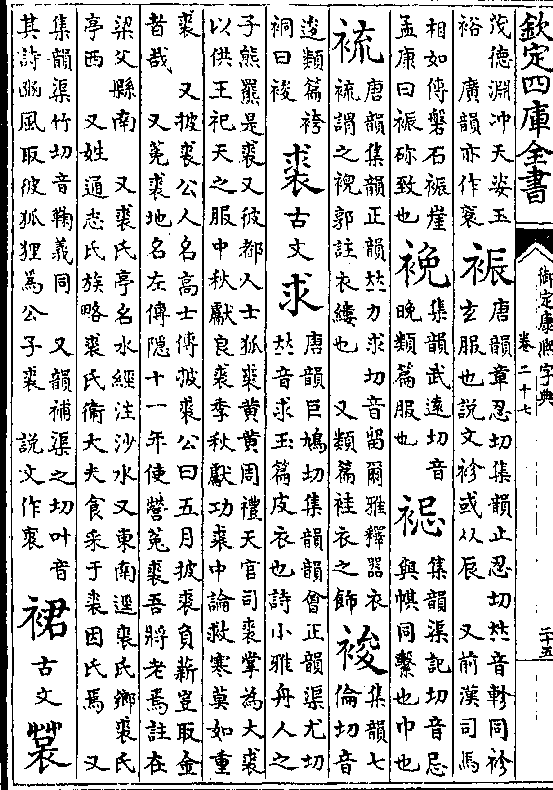 欽定四庫全書
御定康熙字典
卷二十七
二十五
茂德淵冲天姿玉
裕 廣韻亦作褎
裖
唐韻章忍切集韻止忍切𠀤音軫同袗
玄服也說文袗或从辰 又前漢司馬
相如傳磐石裖崖
孟康曰裖砛致也
集韻武遠切音
晚類篇服也
集韻渠記切音忌
與帺同繫也巾也
裗
唐韻集韻正韻𠀤力求切音留爾雅釋器衣
裗謂之䘽郭註衣縷也 又類篇袿衣之飾
集韻七
倫切音
逡類篇袴
曰
裘 古文 求
唐韻巨鳩切集韻韻會正韻渠尤切
𠀤音求玉篇皮衣也詩小雅舟人之
子熊羆是裘又彼都人士狐裘黃黃周禮天官司裘掌為大裘
以供王祀天之服中秋獻良裘季秋獻功裘中論救寒莫如重
裘 又披裘公人名高士傳披裘公曰五月披裘負薪豈取金
者哉 又菟裘地名左傳隱十一年使營菟裘吾將老焉註在
梁父縣南 又裘氏亭名水經注沙水又東南逕裘氏鄉裘氏
亭西 又姓通志氏族略裘氏衛大夫食采于裘因氏焉 又
集韻渠竹切音鞠義同 又韻補渠之切叶音
其詩豳風取彼狐狸為公子裘 說文作裘
裙 古文